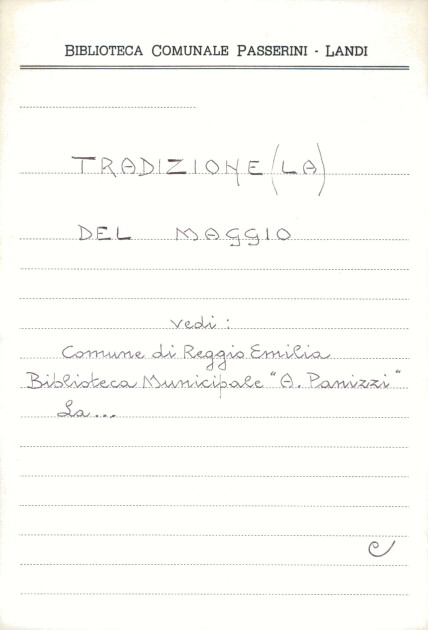 BIBLIOTECA COMUNALE PASSERINI - LANDI
TRADIZIONE (LA)
DEL MAGGIO
vedi :
Comune di Reggio Emilia
Biblioteca Municipale "A. Panizzi"
La...
C